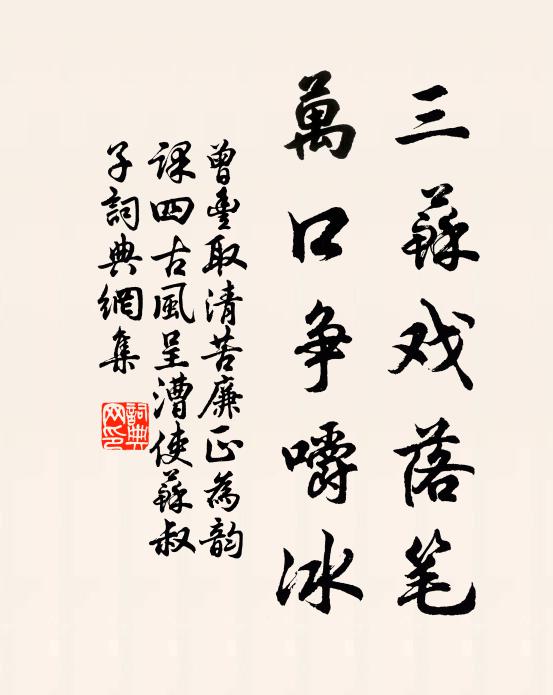 三蘇戏落笔
萬口争嚼冰
曾豊取清苦廉正為韵
课四古風呈漕使蘇叔
子詞典網集
詞典网印